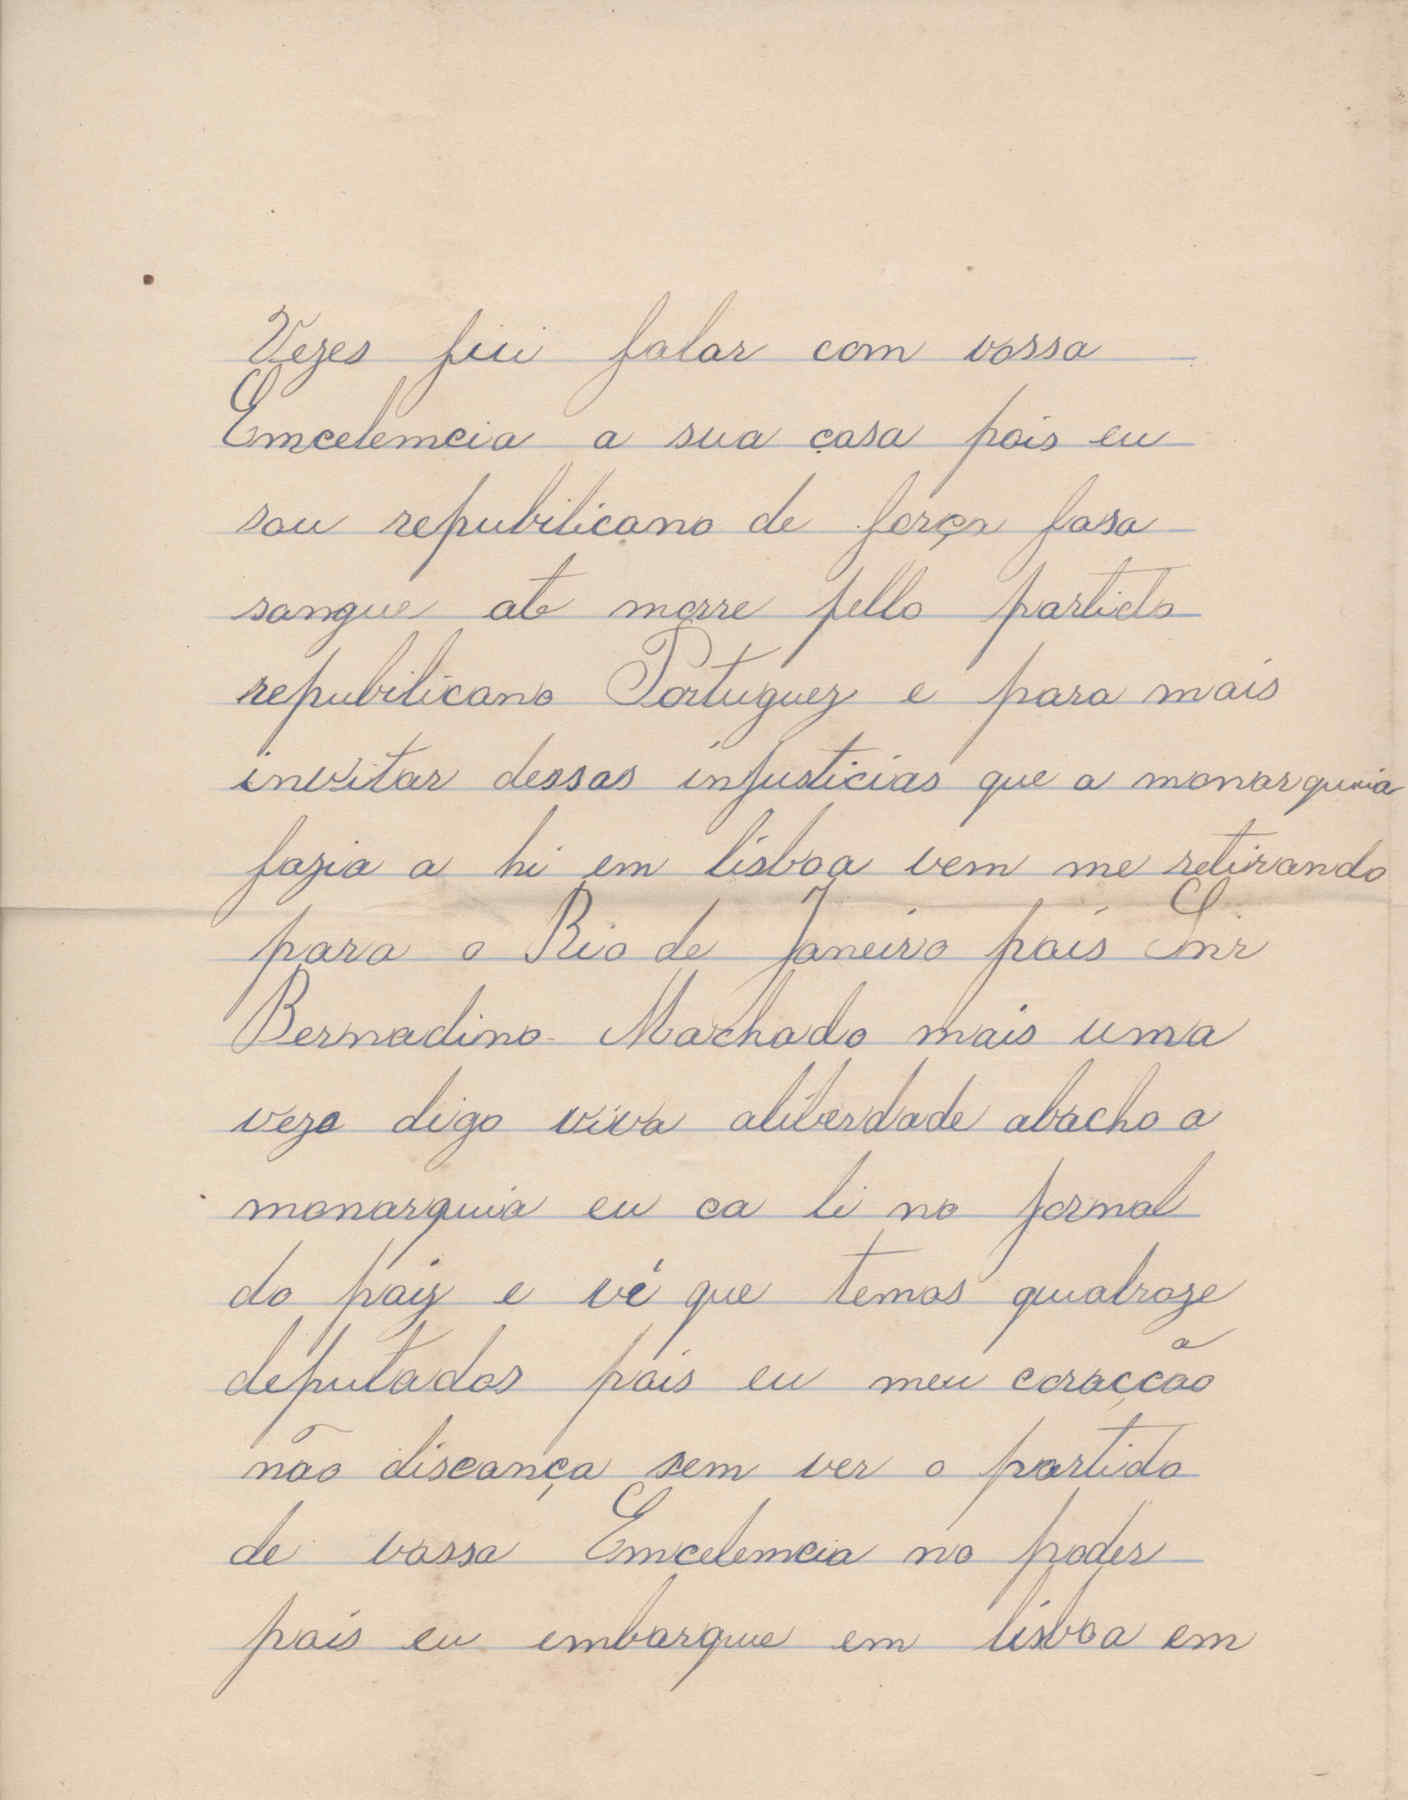 Vezes fui falar com vossa
Emcelemcia a sua casa pois eu
sou repubilicano de força fasa
sangue ate morre pello partido
repubilicano Portuguez e para mais
invitar dessas injusticias que a monarquuia
fazia a hi em lisboa vem me retirando
para o Rio de Janeiro pois Snr
Bernadino Machado mais uma
veze digo viva aliberdade abacho a
monarquia eu ca li no jornal
do paiz e vi que temos quatroze
deputados pois eu meu coracção
não discança sem ver o partido
de vossa Emcelemcia no poder
pois eu embarque em lisboa em